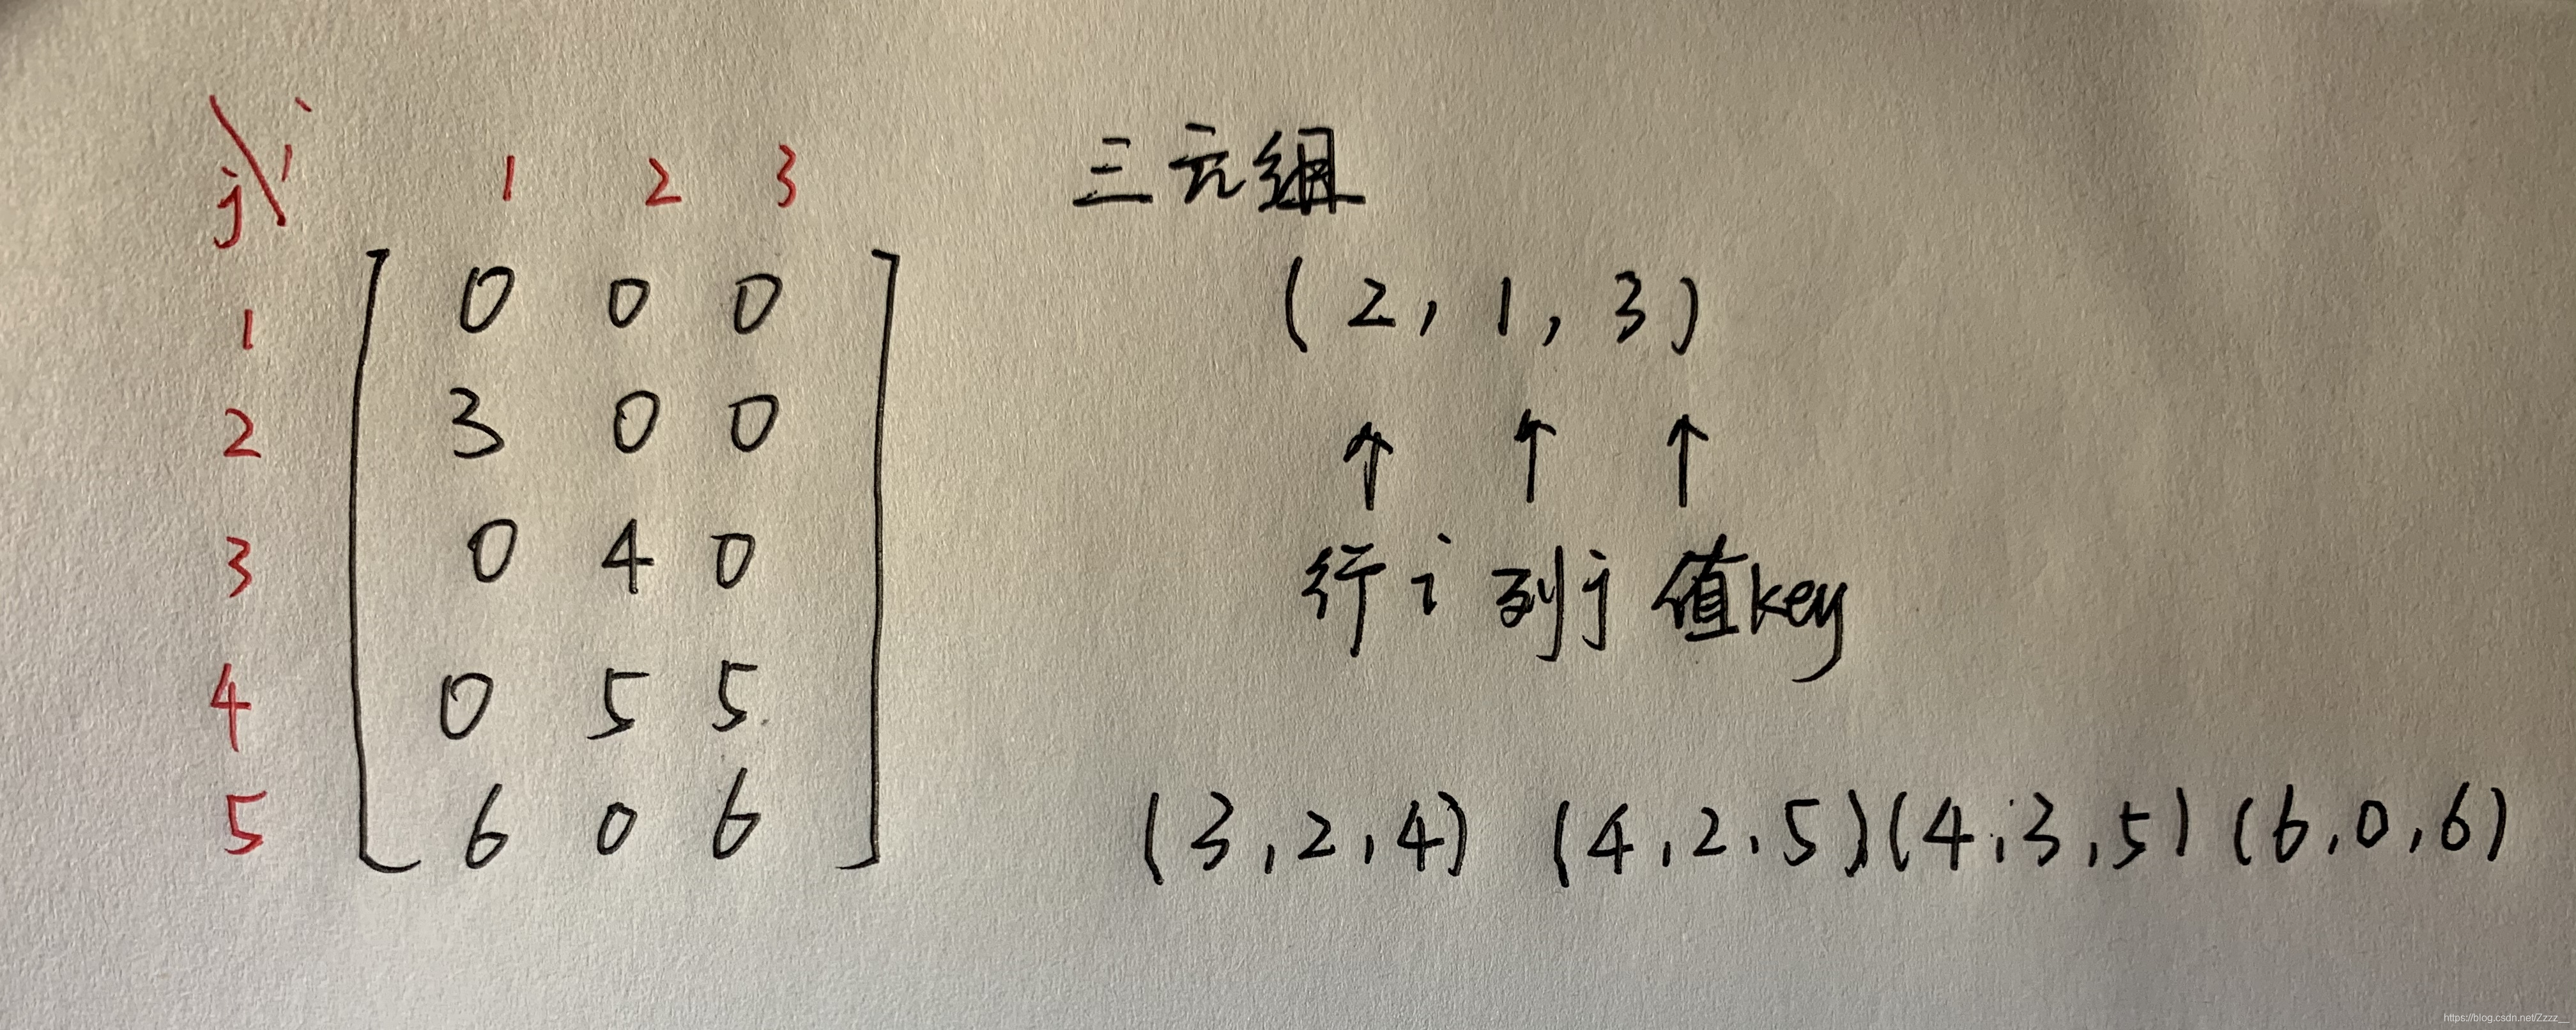 j\i 1 2 3 三元组
1 0 0 0 (2, 1, 3)
2 3 0 0
3 0 4 0 行i 列j 值key
4 0 5 5
5 6 0 6 (3,2,4) (4,2,5)(4,3,5) (6,0,6)
https://blog.csdn.net/Zzzz__